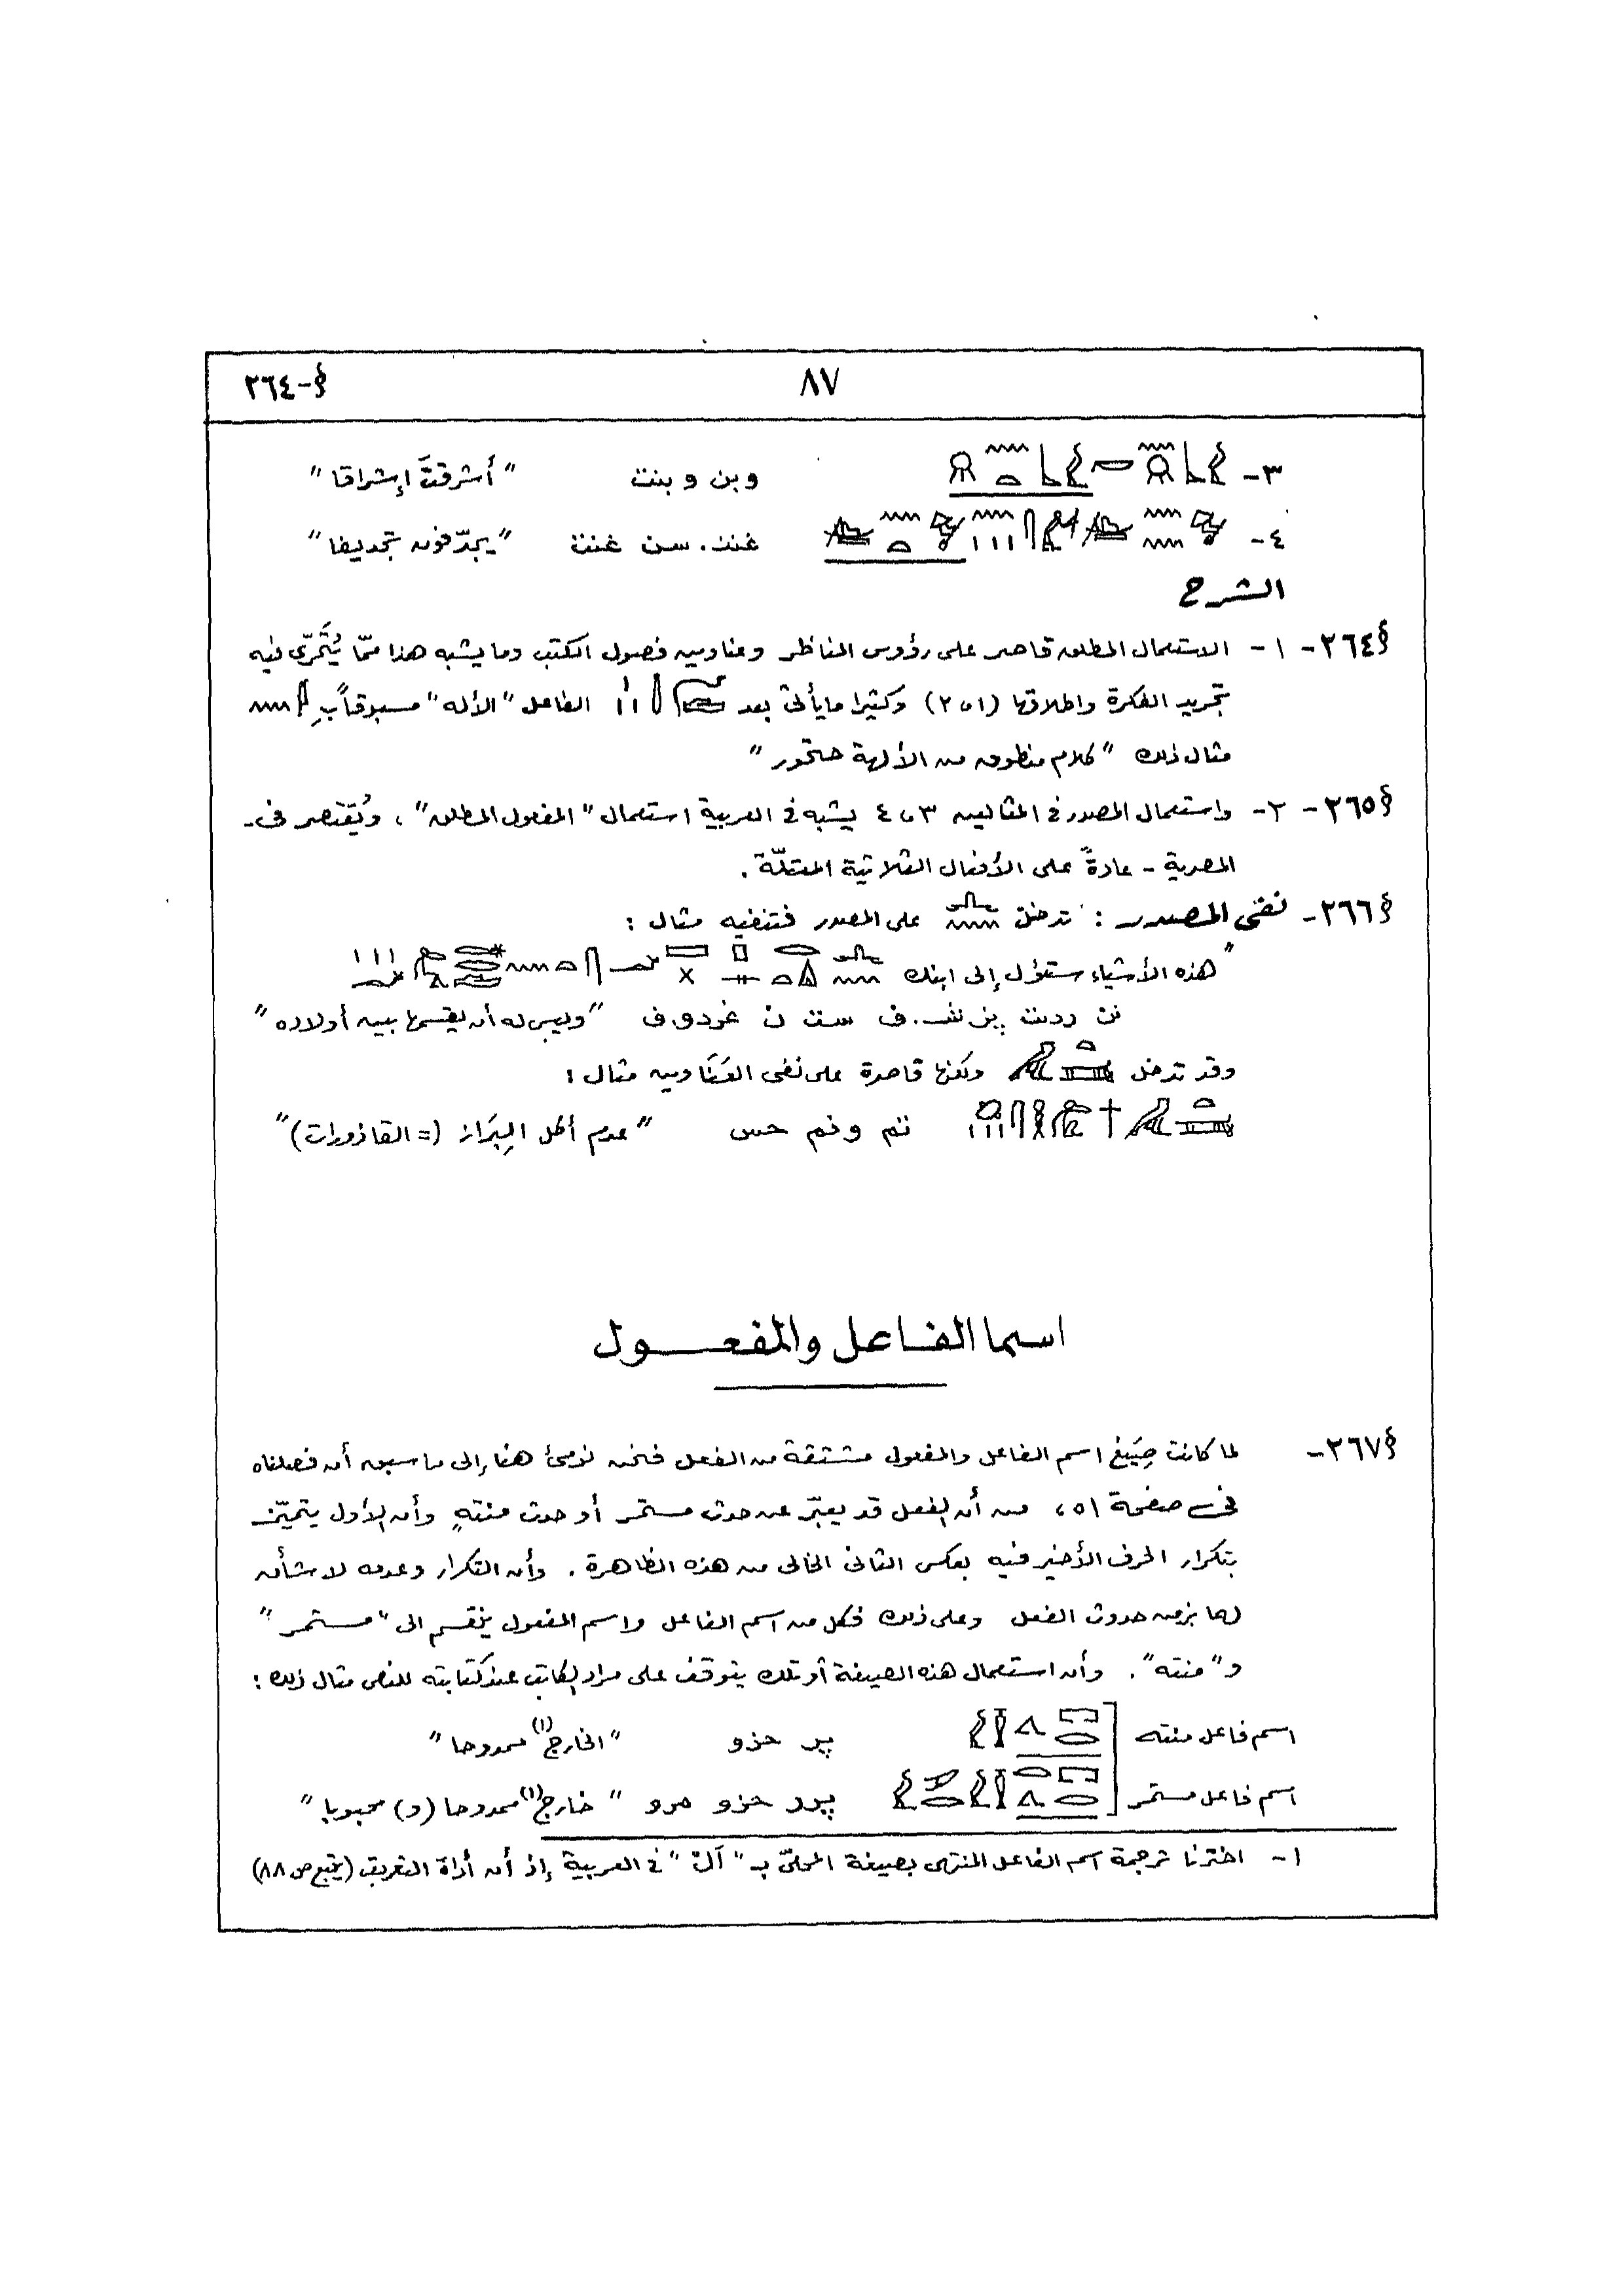 §-٢٦٤
٨٧
٣- وبن وبنت "أشرقتَ إشراقا"
٤- غنن.سن غنت "يجدّفون تجديفا"
الشرح
§٢٦٤- ١- الاستعمال المطلق قاصر على رؤوس المناظر وعناوين فصول الكتب وما يشبه هذا ممّا يُتَحَرّى فيه
تجريد الفكرة واطلاقها (١،٢) وكثيرا ما يأتى بعد الفاعل "الأله" مسبوقاً بِ
مثال ذلك "كلام منطوق من الألهة حتحور"
§٢٦٥- ٢- واستعمال المصدر فى المثالين ٣،٤ يشبه فى العربية استعمال "المفعول المطلق"، ويُقتصر فى-
المصرية - عادةً على الأفعال الثلاثية المعتلّة.
§٢٦٦- نفى المصدر : تدخل على المصدر فتنفيه مثال :
"هذه الأشياء ستؤل إلى ابنك
نن ردىت ف ست ن غردو.ف "وليس له أن يقسمها بين أولاده"
وقد تدخل ولكنها قاصرة على نفى العَنَاوين مثال :
تم ونم حس "عدم أكل البِرَاز (= القاذورات)"
اسما الفاعل والمفعول
§٢٦٧- لما كانت صِيَغ اسم الفاعل والمفعول مشتقة من الفعل فنحن نومئ هنا إلى ما سبق أن فصلناه
فى صفحة ٥١، من أن الفعل قد يعبّر عن حدث مستمر أو حدث منتهٍ وأن الأول يتميّز
بتكرار الحرف الأخير فيه بعكس الثانى الخالى من هذه الظاهرة . وأن التكرار وعدمه لا شأن
لهما بزمن حدوث الفعل وعلى ذلك فكل من اسم الفاعل واسم المفعول ينقسم الى "مستمر"
و"منته". وأن استعمال هذه الصيغة أو تلك يتوقف على مراد الكاتب عند كتابته للنص مثال ذلك :
اسم فاعل منته پر حزو "الخارج(١) ممدوحا"
اسم فاعل مستمر پرر حزو مرو "خارج(١) ممدوحا (و) محبوبا"
١- اخترنا ترجمة اسم الفاعل المنتهى بصيغة المحلىّ بـ "اَلْ" فى العربية إذ أن أداة التعريف (يتبع ص ٨٨)